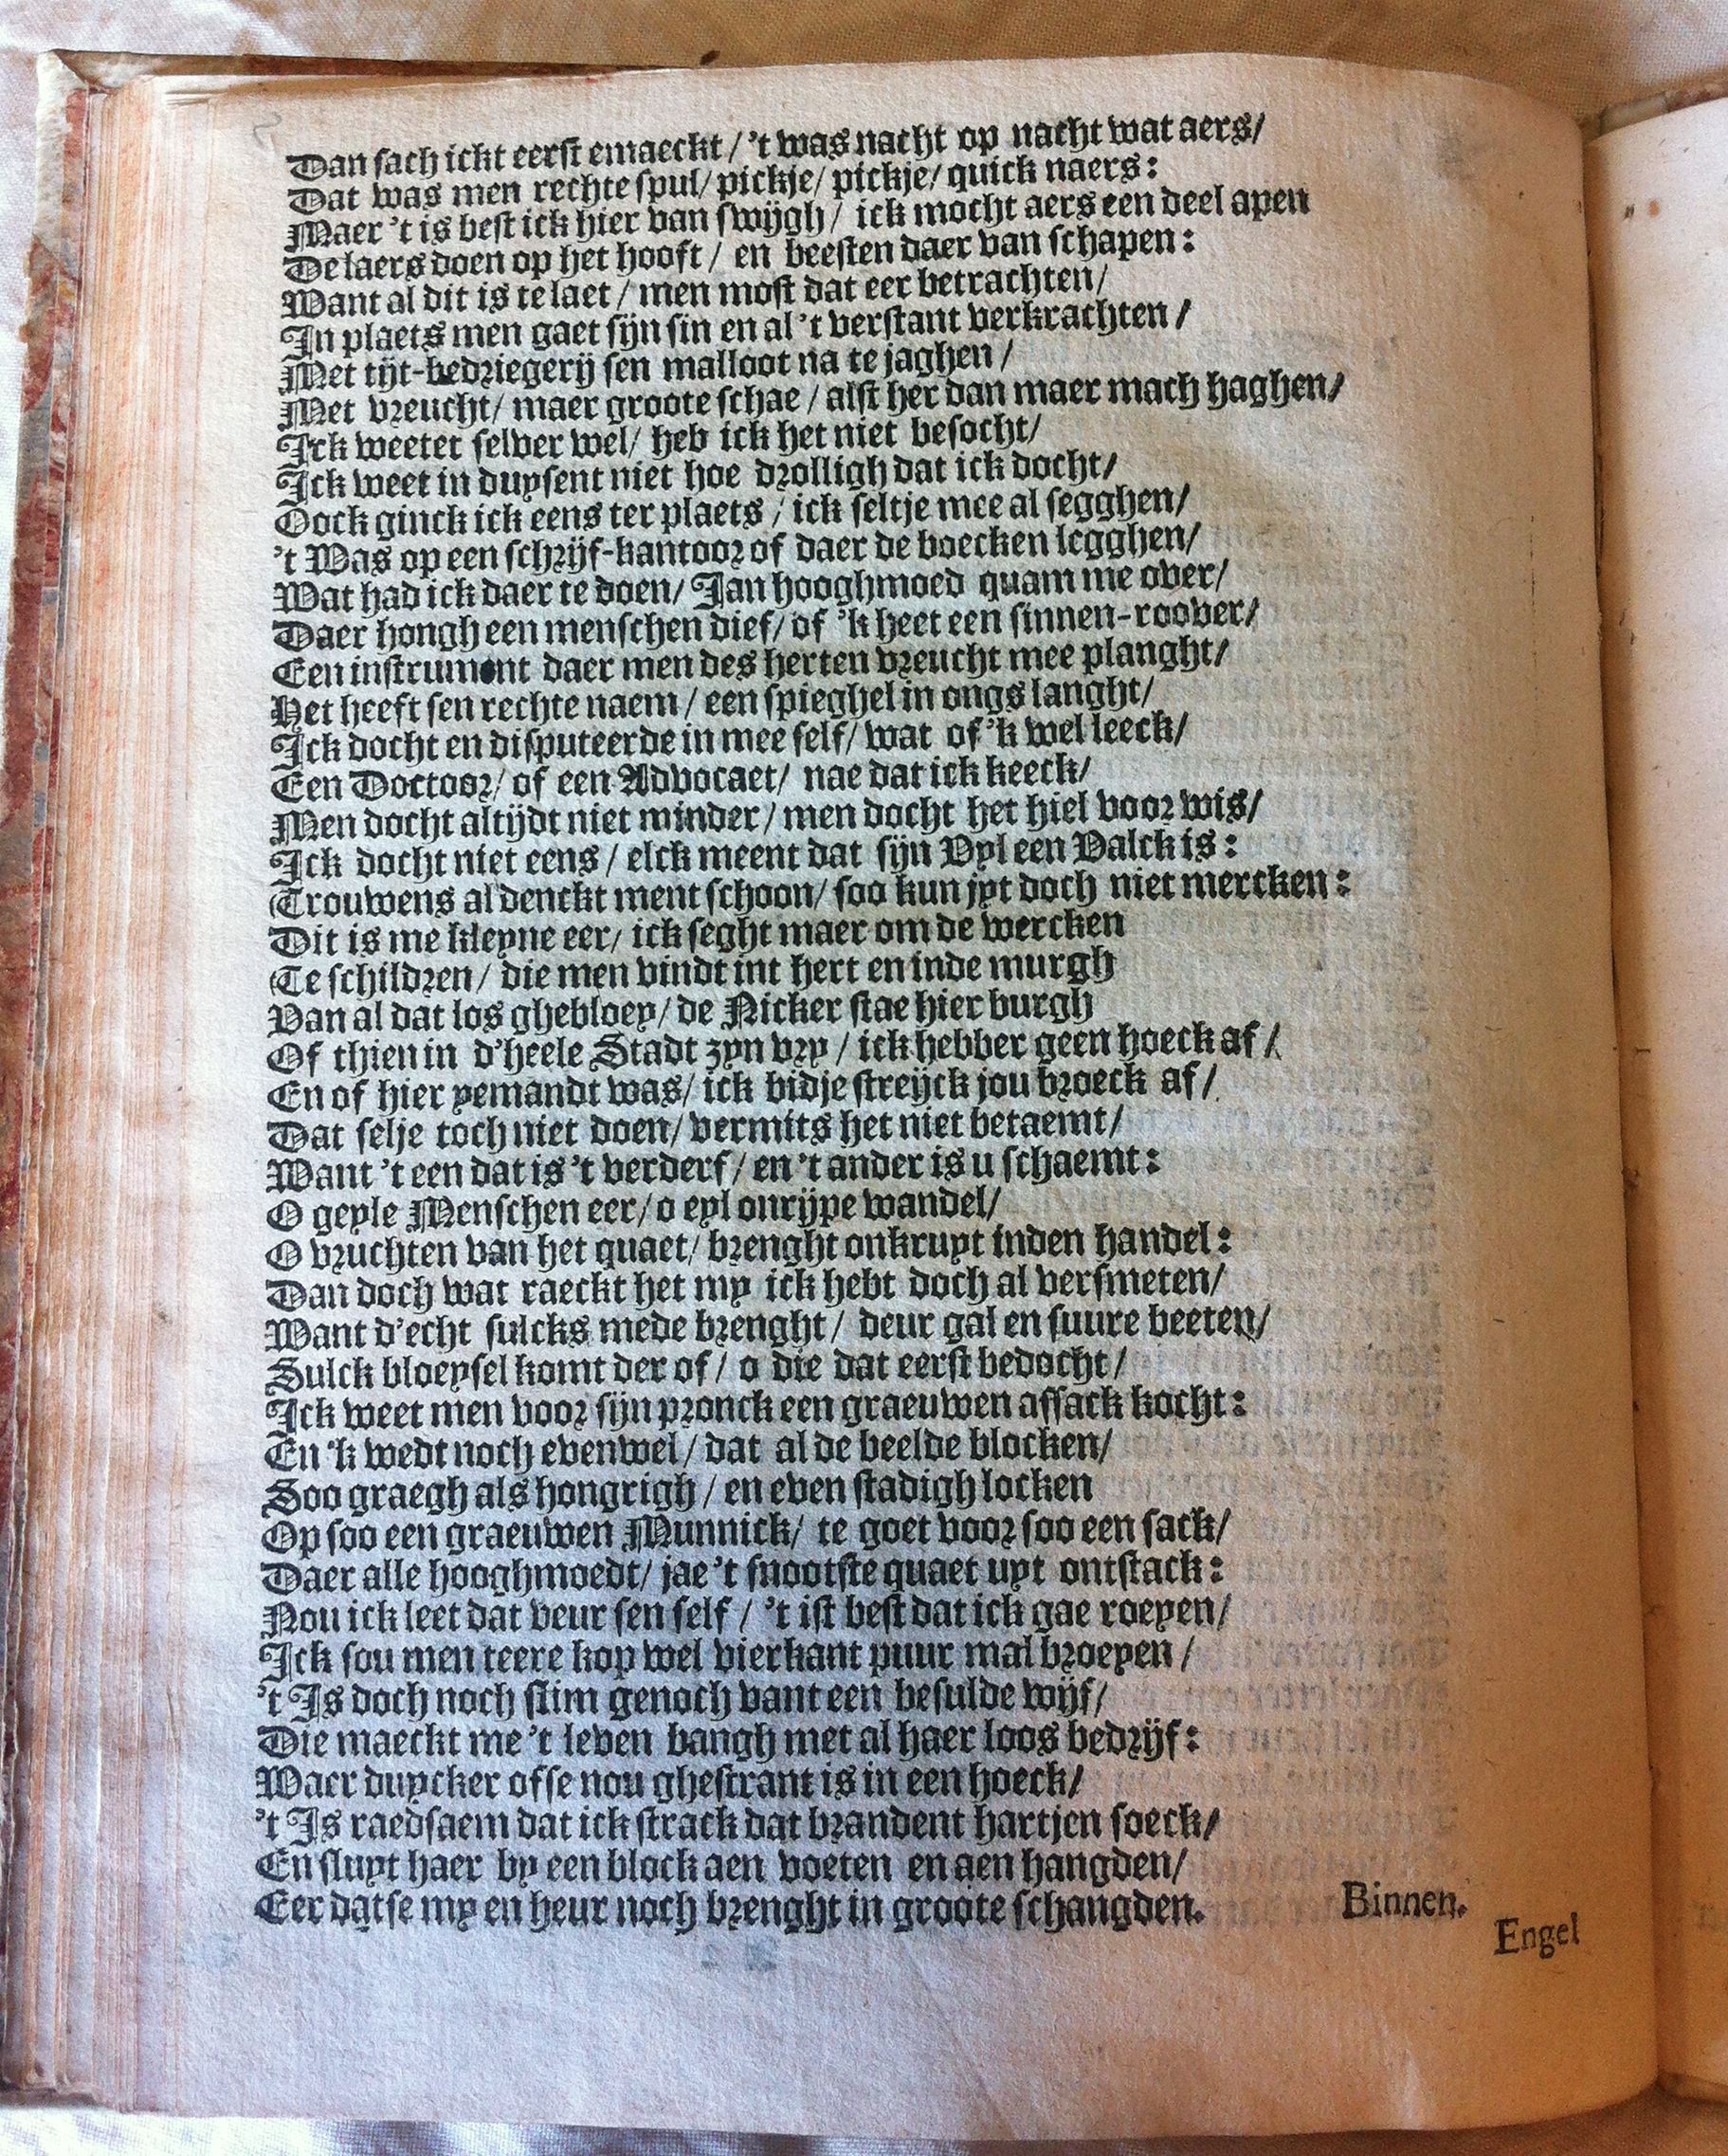 Dan sach ickt eerst emaeckt / 't was nacht op nacht wat aers/
Dat was men rechte spul/ pickje/ pickje/ quick naers:
Maer 't is best ick hier van swijgh / ick mocht aers een deel apen
De laers doen op het hooft / en beesten daer van schapen:
Want al dit is te laet / men most dat eer betrachten/
In plaets men gaet sijn sin en al 't verstant verkrachten /
Met tijt-bedriegerij sen malloot na te jaghen /
Met vreucht/ maer groote schae / alst her dan maer mach haghen/
Ick weetet selver wel/ heb ick het niet besocht/
Ick weet in duysent niet hoe drolligh dat ick docht/
Oock ginck ick eens ter plaets / ick seltje mee al segghen/
't Was op een schrijf-kantoor of daer de boecken legghen/
Wat had ick daer te doen/ Jan hooghmoed quam me over/
Daer hongh een menschen dief/ of 'k heet een sinnen-roover/
Een instrument daer men des herten vreucht mee planght/
Het heeft sen rechte naem / een spieghel in ongs langht/
Ick docht en disputeerde in mee self/ wat of 'k wel leeck/
Een Doctoor/ of een Advocaet/ nae dat ick keeck/
Men docht altijdt niet minder / men docht het hiel voor wis/
Ick docht niet eens / elck meent dat sijn Uyl een Valck is:
Trouwens al denckt ment schoon/ soo kun jyt doch niet mercken:
Dit is me kleyne eer/ ick seght maer om de wercken
Te schildren/ die men vindt int hert en inde murgh
Van al dat los ghebloey/ de Nicker stae hier burgh
Of thien in d'heele Stadt zyn vry / ick hebber geen hoeck af /
En of hier yemandt was/ ick bidje streijck jou broeck af/
Dat selje toch niet doen/ vermits het niet betaemt/
Want 't een dat is 't verderf/ en 't ander is u schaemt:
O geyle Menschen eer/ o eyl onrijpe wandel/
O vruchten van het quaet/ brenght onkruyt inden handel:
Dan doch wat raeckt het my ick hebt doch al versmeten/
Want d'echt sulcks mede brenght/ deur gal en suure beeten/
Sulck bloeysel komt der of/ o die dat eerst bedocht/
Ick weet men voor sijn pronck een graeuwen assack kocht:
En 'k wedt noch evenwel/ dat al de beelde blocken/
Soo graegh als hongrigh / en even stadigh locken
Op soo een graeuwen Munnick/ te goet voor soo een sack/
Daer alle hooghmoedt/ jae 't snootste quaet uyt ontstack:
Nou ick leet dat veur sen self / 't ist best dat ick gae roeyen/
Ick sou men teere kop wel vierkant puur mal broeyen /
't Is doch noch slim genoch vant een besulde wijf/
Die maeckt me 't leven bangh met al haer loos bedrijf:
Waer duycker ofse nou ghestrant is in een hoeck/
't Is raedsaem dat ick strack dat brandent hartjen soeck/
En sluyt haer by een block aen voeten en aen hangden/
Eer datse my en heur noch brenght in groote schangden. Binnen.
Engel